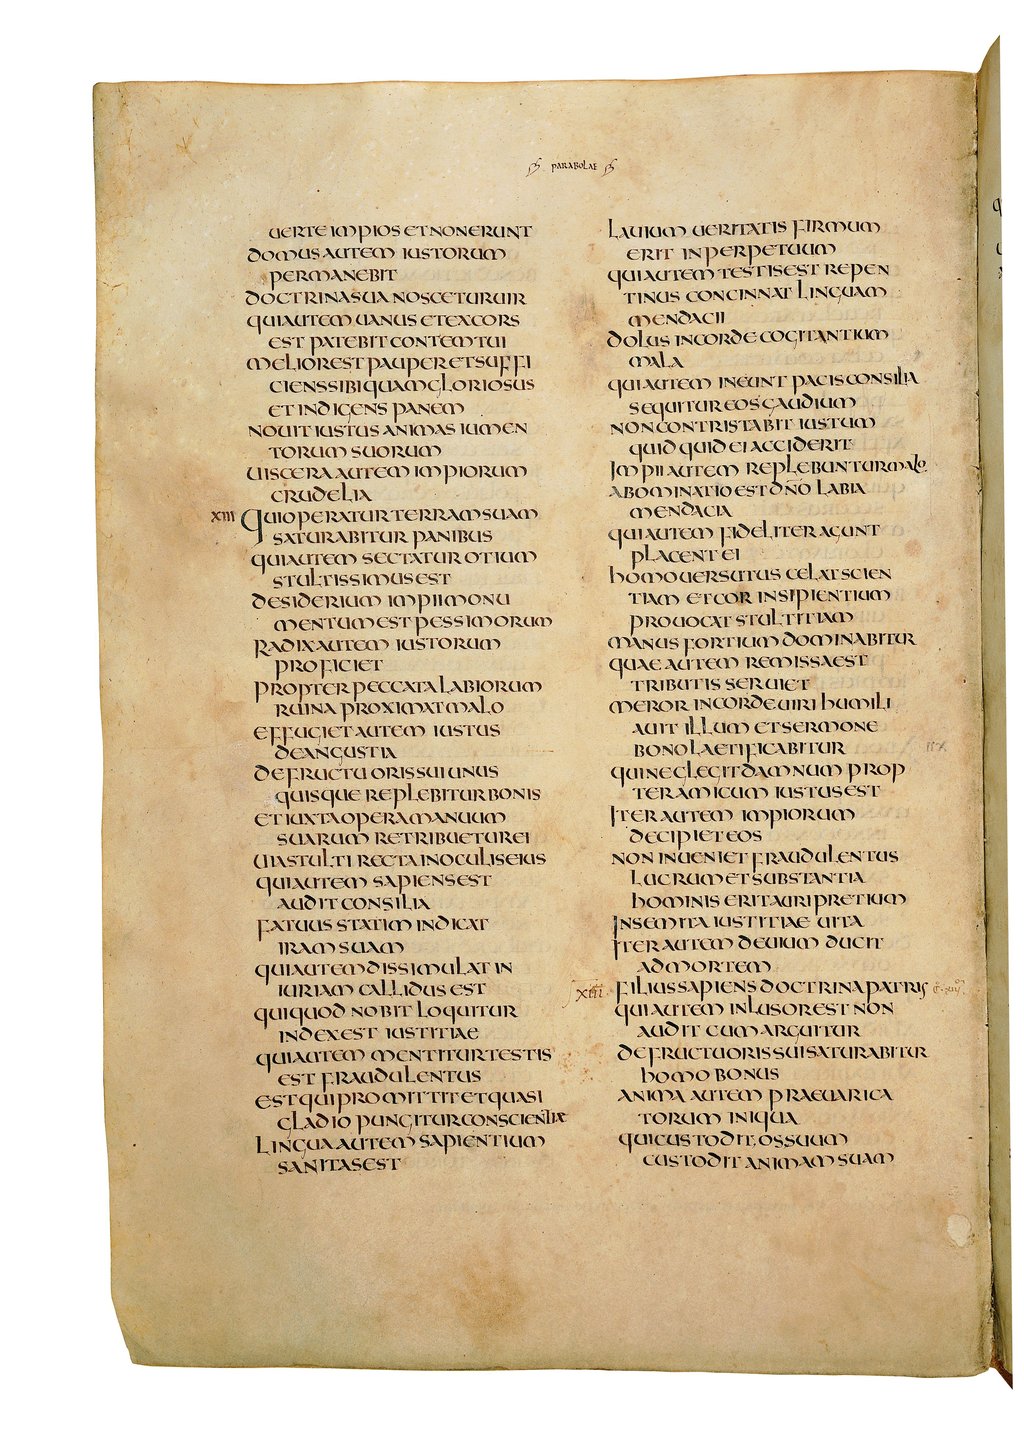 PARABOLAE
UERTE IMPIOS ET NON ERUNT
DOMUS AUTEM IUSTORUM
PERMANEBIT
DOCTRINA SUA NOSCETUR UIR
QUI AUTEM UANUS ET EXCORS
EST PATEBIT CONTEMTUI
MELIOR EST PAUPER ET SUFFI
CIENS SIBI QUAM GLORIOSUS
ET INDIGENS PANEM
NOUIT IUSTUS ANIMAS IUMEN
TORUM SUORUM
UISCERA AUTEM IMPIORUM
CRUDELIA
XIII QUI OPERATUR TERRAM SUAM
SATURABITUR PANIBUS
QUI AUTEM SECTATUR OTIUM
STULTISSIMUS EST
DESIDERIUM IMPII MONU
MENTUM EST PESSIMORUM
RADIX AUTEM IUSTORUM
PROFICIET
PROPTER PECCATA LABIORUM
RUINA PROXIMAT MALO
EFFUGIET AUTEM IUSTUS
DE ANGUSTIA
DE FRUCTU ORIS SUI UNUS
QUISQUE REPLEBITUR BONIS
ET IUXTA OPERA MANUUM
SUARUM RETRIBUETUR EI
UIA STULTI RECTA IN OCULIS EIUS
QUI AUTEM SAPIENS EST
AUDIT CONSILIA
FATUUS STATIM INDICAT
IRAM SUAM
QUI AUTEM DISSIMULAT IN
IURIAM CALLIDUS EST
QUI QUOD NOBIT LOQUITUR
INDEX EST IUSTITIAE
QUI AUTEM MENTITUR TESTIS
EST FRAUDULENTUS
EST QUI PROMITTIT ET QUASI
GLADIO PUNGITUR CONSCIENTIAE
LINGUA AUTEM SAPIENTIUM
SANITAS EST
LAUIUM UERITATIS FIRMUM
ERIT IN PERPETUUM
QUI AUTEM TESTIS EST REPEN
TINUS CONCINNAT LINGUAM
MENDACII
DOLUS IN CORDE COGITANTIUM
MALA
QUI AUTEM INEUNT PACIS CONSILIA
SEQUITUR EOS GAUDIUM
NON CONTRISTABIT IUSTUM
QUIDQUID EI ACCIDERIT
IMPII AUTEM REPLEBUNTUR MALO
ABOMINATIO EST DNO LABIA
MENDACIA
QUI AUTEM FIDELITER AGUNT
PLACENT EI
HOMO UERSUTUS CELAT SCIEN
TIAM ET COR INSIPIENTIUM
PROUOCAT STULTITIAM
MANUS FORTIUM DOMINABITUR
QUAE AUTEM REMISSA EST
TRIBUTIS SERUIET
MEROR IN CORDE UIRI HUMILI
AUIT ILLUM ET SERMONE
BONO LAETIFICABITUR
QUI NEGLEGIT DAMNUM PROP
TER AMICUM IUSTUS EST
ITER AUTEM IMPIORUM
DECIPIET EOS
NON INUENIET FRAUDULENTUS
LUCRUM ET SUBSTANTIA
HOMINIS ERIT AURI PRETIUM
IN SEMITA IUSTITIAE UITA
ITER AUTEM DEUIUM DUCIT
AD MORTEM
XIIII FILIUS SAPIENS DOCTRINA PATRIS
QUI AUTEM INLUSOR EST NON
AUDIT CUM ARGUITUR
DE FRUCTU ORIS SUI SATURABITUR
HOMO BONUS
ANIMA AUTEM PRAEUARICA
TORUM INIQUA
QUI CUSTODIT OS SUUM
CUSTODIT ANIMAM SUAM